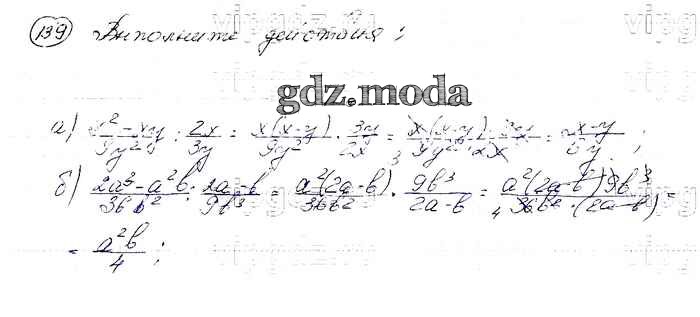 139 Выполните действия:
gdz.moda
а) (x² - xy)/(9y²) : (2x)/(3y) = (x(x-y))/(9y²) · (3y)/(2x) = (x(x-y) · 3y)/(9y² · 2x) = (x-y)/(6y) ;
б) (2a³ - a²b)/(36b²) : (2a-b)/(9b³) = (a²(2a-b))/(36b²) · (9b³)/(2a-b) = (a²(2a-b) 9b³)/(36b² · (2a-b)) =
= (a²b)/4 ;